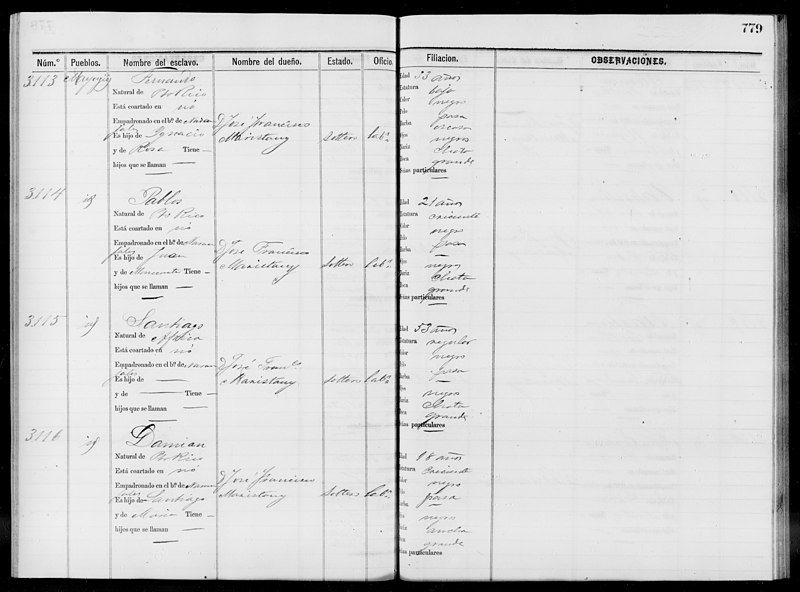 779
Núm.º Pueblos. Nombre del esclavo. Nombre del dueño. Estado. Oficio. Filiacion. OBSERVACIONES.
3113 Fernando
Natural de Pto Rico
Está coartado en nó
Empadronado en el bº. de
Es hijo de Ignacio
y de Rosa Tiene —
hijos que se llaman —
D José Francisco
Maristany
soltero
labr.
Edad 33 años
Estatura baja
Color negro
Pelo pasa
Barba escasa
Ojos negros
Nariz chata
Boca grande
Señas particulares
3114 id Pablos
Natural de Pto Rico
Está coartado en nó
Empadronado en el bº. de
Es hijo de Juan
y de Tiene —
hijos que se llaman —
D José Francisco
Maristany
soltero
labr.
Edad 21 años
Estatura creciente
Color negro
Pelo pasa
Barba —
Ojos negros
Nariz chata
Boca grande
Señas particulares
3115 id Santiago
Natural de Africa
Está coartado en nó
Empadronado en el bº. de
Es hijo de —
y de — Tiene —
hijos que se llaman —
D José Franco.
Maristany
soltero
labr.
Edad 53 años
Estatura regular
Color negro
Pelo pasa
Barba —
Ojos negros
Nariz chata
Boca grande
Señas particulares
3116 id Damian
Natural de Pto Rico
Está coartado en nó
Empadronado en el bº. de
Es hijo de Santiago
y de Maria Tiene —
hijos que se llaman —
D José Francisco
Maristany
soltero
labr.
Edad 18 años
Estatura creciente
Color negro
Pelo pasa
Barba —
Ojos negros
Nariz ancha
Boca grande
Señas particulares